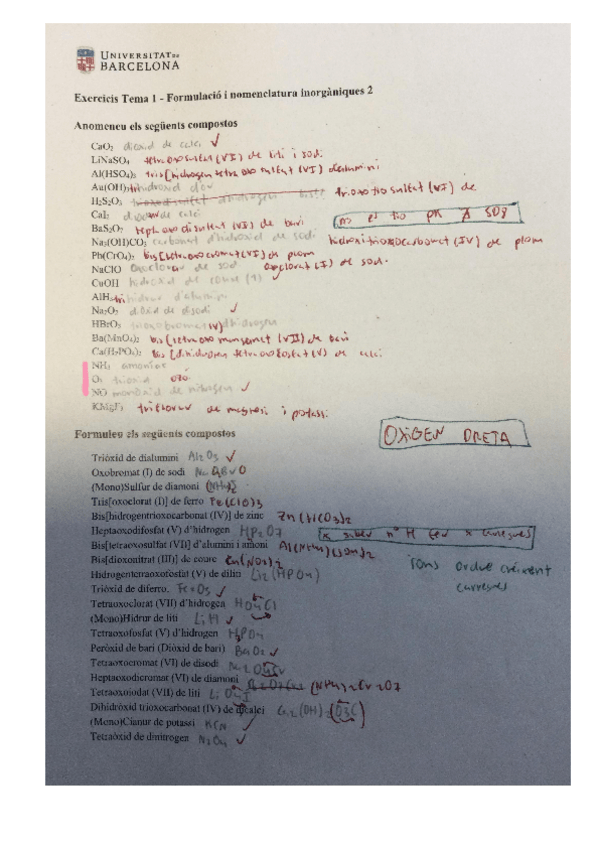 UNIVERSITAT DE
BARCELONA
Exercicis Tema 1 - Formulació i nomenclatura inorgàniques 2
Anomeneu els següents compostos
CaO₂ dioxid de calci ✓
LiNaSO₄ tetraoxosulfat (VI) de liti i sodi
Al(HSO₄)₃ tris[hidrogen tetraoxosulfat (VI)] d'alumini
Au(OH)₃ trihidroxid d'or
H₂S₂O₃ trioxotiosulfat (VI) de
CaI₂ diiodur de calci
BaS₂O₇ heptaoxodisulfat (VI) de bari
Na₃(OH)CO₃ carbonat d'hidroxid de sodi hidroxitrioxocarbonat (IV) de plom
Pb(CrO₄)₂ bis[tetraoxocromat (VI)] de plom
NaClO de sodi oxoclorat (I) de sodi.
CuOH hidroxid de coure (1) ✓
AlH₃ trihidrur d'alumini
Na₂O₂ dioxid de disodi ✓
HBrO₃ trioxobromat (V) d'hidrogen
Ba(MnO₄)₂ bis[tetraoxomanganat (VII)] de bari
Ca(H₂PO₄)₂ bis[dihidrogen tetraoxofosfat (V)] de calci
NH₃ amoníac
O₃ trioxid ozo.
NO monòxid de nitrogen ✓
KMgF₃ trifluorur de magnesi i potassi
Formuleu els següents compostos
OXIGEN DRETA
Triòxid de dialumini Al₂O₃ ✓
Oxobromat (I) de sodi Na
(Mono)Sulfur de diamoni (NH₄)₂S
Tris[oxoclorat (I)] de ferro Fe(ClO)₃
Bis[hidrogentrioxocarbonat (IV)] de zinc Zn(HCO₃)₂
Heptaoxodifosfat (V) d'hidrogen HP₂O7
Bis[tetraoxosulfat (VI)] d'alumini i amoni Al(NH₄)(SO₄)₂
Bis[dioxonitrat (III)] de coure Cu(NO₂)₂
Ions ordre creixent
càrregues
Hidrogentetraoxofosfat (V) de diliti Li₂(HPO₄)
Triòxid de diferro Fe₂O₃ ✓
Tetraoxoclorat (VII) d'hidrogen HO₄Cl
(Mono)Hidrur de liti LiH ✓
Tetraoxofosfat (V) d'hidrogen H₃PO₄
Peròxid de bari (Diòxid de bari) BaO₂ ✓
Tetraoxocromat (VI) de disodi Na₂O₄Cr
Heptaoxodicromat (VI) de diamoni (NH₄)₂Cr₂O7
Tetraoxoiodat (VII) de liti LiO₄I
Dihidròxid trioxocarbonat (IV) de dicalci Ca₂(OH)₂(O₃C)
(Mono)Cianur de potassi KCN ✓
Tetraòxid de dinitrogen N₂O₄ ✓